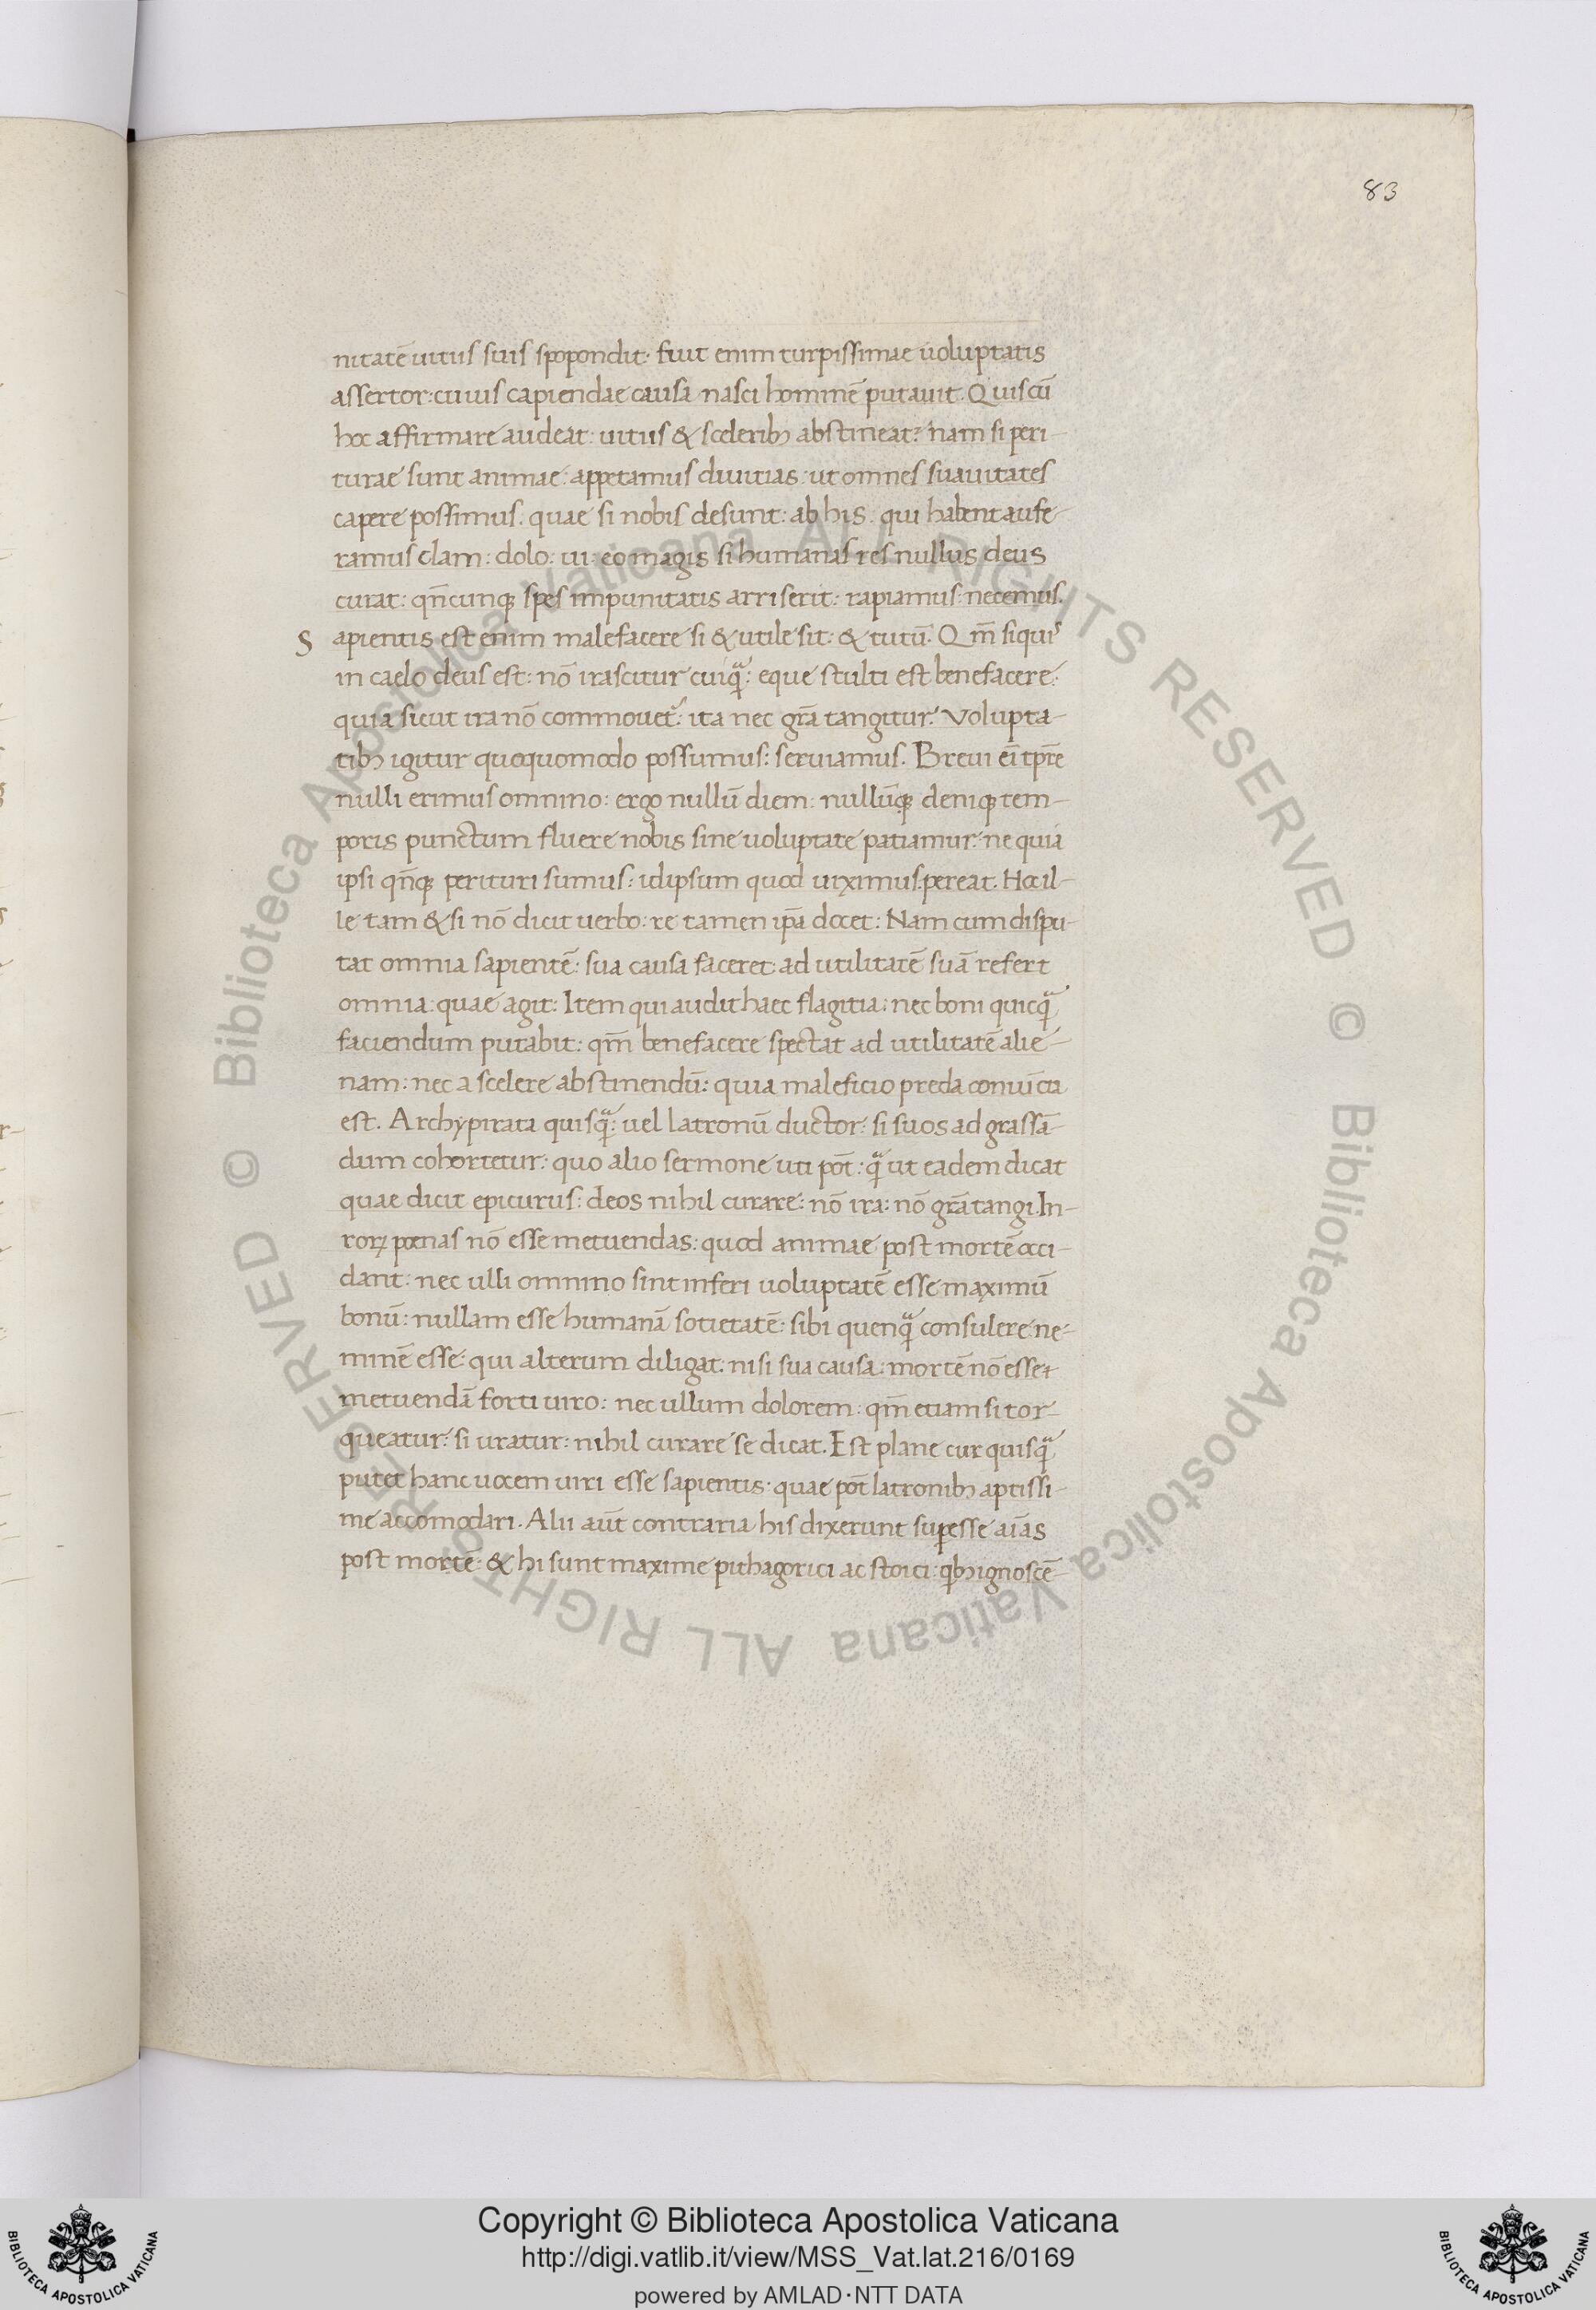 83
nitatē uitiis suis spopondit· fuit enim turpissimae uoluptatis
assertor: cuius capiendae causa nasci hominē putauit. Quis cū
hoc affirmare audeat: uitiis & sceleribꝫ abstineat? nam si peri-
turae sunt animae: appetamus diuitias: ut omnes suauitates
capere possimus. quae si nobis desunt: ab his: qui habent aufe-
ramus clam: dolo: ui: eo magis si humanas res nullus deus
curat: qn̄cunqꝫ spes impunitatis arriserit: rapiamus: necemus.
Sapientis est enim malefacere si & utile sit: & tutū. Qm̄ siquis
in caelo deus est: nō irascitur cuiqᷓ: eque stulti est benefacere:
quia sicut ira nō commouet᷑: ita nec gr̄a tangitur. Volupta-
tibꝫ igitur quoquomodo possumus: seruiamus. Breui ei̅ tp̄re
nulli erimus omnino: ergo nullū diem: nullūqꝫ deniqꝫ tem-
poris punctum fluere nobis sine uoluptate patiamur: ne quia
ipsi qn̄qꝫ perituri sumus: idipsum quod uiximus: pereat. Hoc il-
le tam & si nō dicit uerbo: re tamen ip̄a docet: Nam cum dispu-
tat omnia sapientē: sua causa faceret: ad utilitatē suā refert
omnia: quae agit: Item qui audit haec flagitia: nec boni quicqᷓ
faciendum putabit: qm̄ benefacere spectat ad utilitatē alie-
nam: nec a scelere abstinendū: quia maleficio preda coniūcta
est. Archypirata quisqᷓ: uel latronū ductor: si suos ad grassā-
dum cohortetur: quo alio sermone uti pōt: qᷓ ut eadem dicat
quae dicit epicurus: deos nihil curare: nō ira: nō gr̄a tangi. In-
rorꝝ poenas nō esse metuendas: quod animae post mortē occi-
dant: nec ulli omnino sint inferi uoluptatē esse maximū
bonū: nullam esse humanā sotietatē: sibi quenqᷓ consulere: ne-
minē esse: qui alterum diligat: nisi sua causa: mortē nō esse
metuendā forti uiro: nec ullum dolorem: qm̄ etiam si tor-
queatur: si uratur: nihil curare se dicat. Est plane cur quisqᷓ
putet hanc uocem uiri esse sapientis: quae pōt latronibꝫ aptissi-
me accomodari. Alii aūt contraria his dixerunt suꝑesse aīas
post mortē: & hi sunt maxime pithagorici ac stoici: qbꝫ ignoscē-
© Biblioteca Apostolica Vaticana ALL RIGHTS RESERVED © Biblioteca Apostolica Vaticana ALL RIGHTS RESERVED
Copyright © Biblioteca Apostolica Vaticana
http://digi.vatlib.it/view/MSS_Vat.lat.216/0169
powered by AMLAD·NTT DATA
BIBLIOTECA APOSTOLICA VATICANA
BIBLIOTECA APOSTOLICA VATICANA